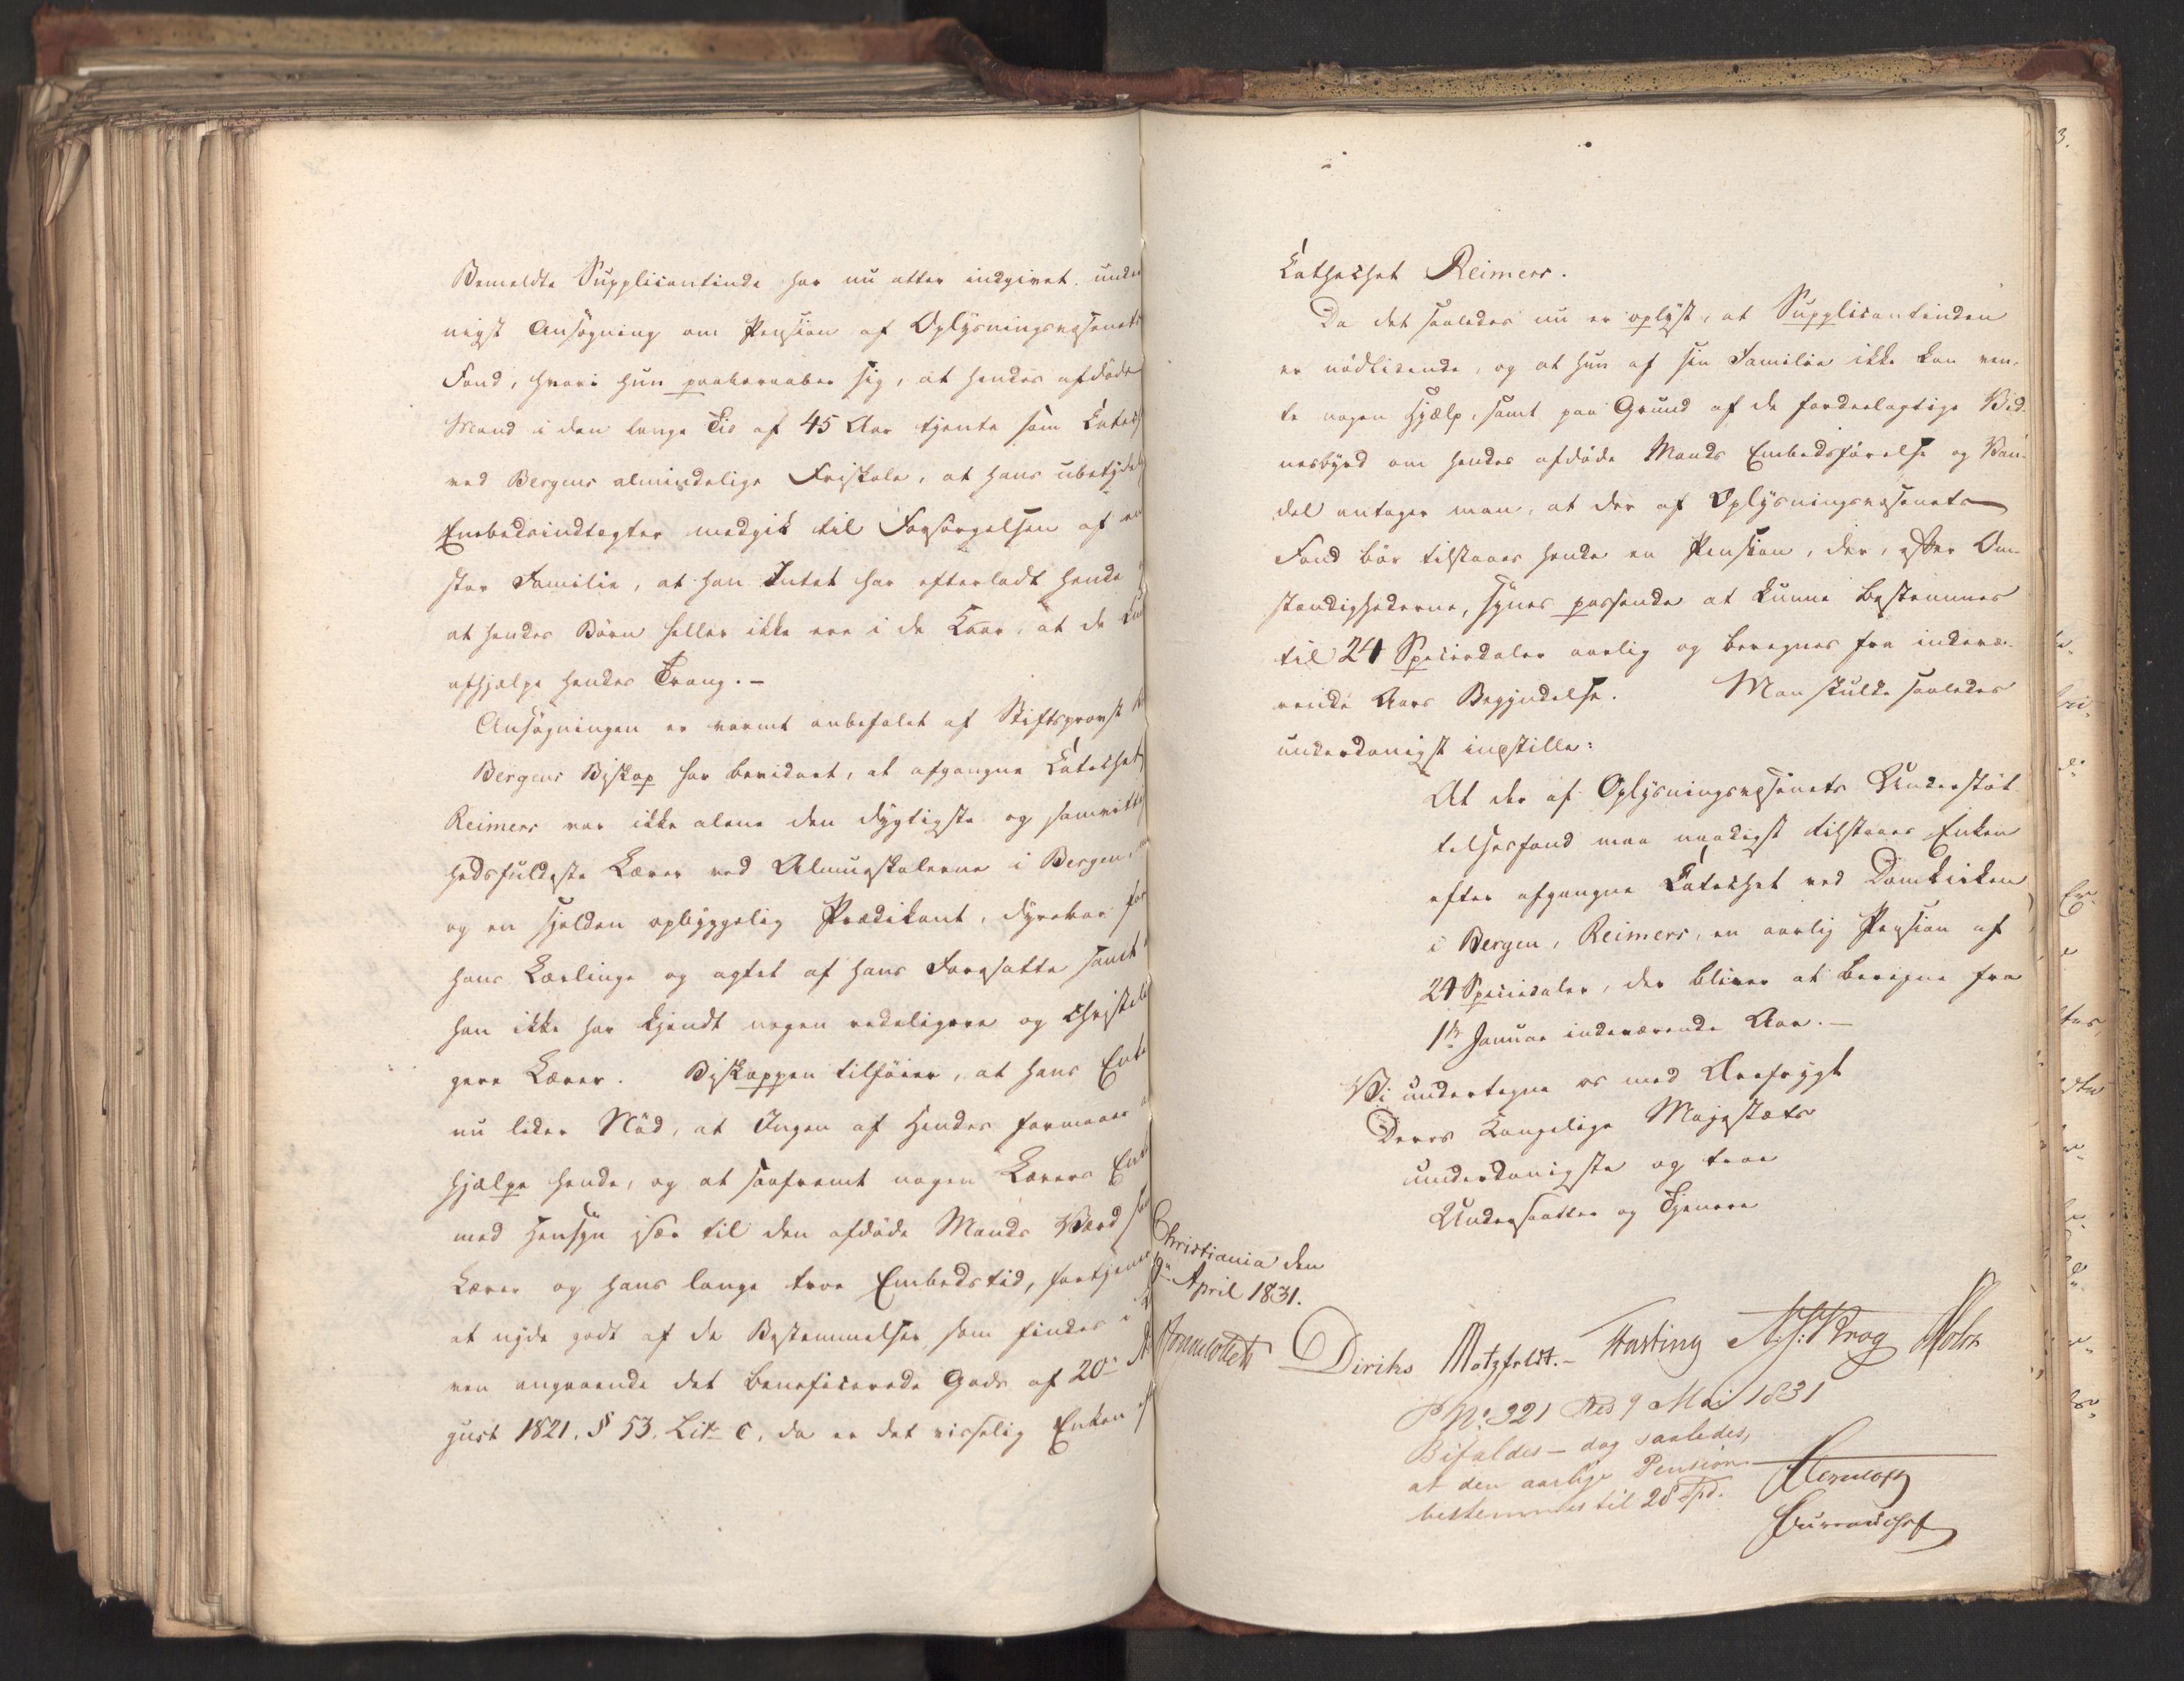 Bemeldte Supplicantinde har nu atter indgivet unde
nigst Ansøgning om Pension af Oplysningsvæsenets
Fond, hvori hun paaberaaber sig, at hendes afdøde
Mand i den lange Tid af 45 Aar tjente som Katech
ved Bergens almindelige Friskole, at hans ubetyde
Embedsindtægter medgik til Forsørgelsen af en
stor Familie, at han Intet har efterladt hende
at hendes Børn heller ikke ere i de Kaar, at de kun
afhjælpe hendes Trang. –
Ansøgningen er varmt anbefalet af Stiftsprovst
Bergens Biskop har bevidnet, at afgangne Katechet
Reimers var ikke alene den dygtigste og samvittig
hedsfuldeste Lærer ved Almueskolerne i Bergen,
og en sjelden opbyggelig Prædikant, dyrebar for
hans Lærlinge og agtet af hans Foresatte samt
han ikke har kjendt nogen redeligere og christeli
gere Lærer. Biskoppen tilføier, at hans Enke
nu lider Nød, at Ingen af Hendes formaaer
hjælpe hende, og at saafremt nogen Lærers Enke
med Hensyn især til den afdøde Mands Værd som
Lærer og hans lange troe Embedstid, fortjener
at nyde godt af de Bestemmelser som findes i
ven angaaende det beneficerede Gods af 20de Au
gust 1821. § 53. Litr. c, da er det visselig Enken ef
Kathechet Reimers.
Da det saaledes nu er oplyst, at Supplicantinden
er nødlidende, og at hun af sin Familie ikke kan ven-
te nogen Hjælp, samt paa Grund af de fordeelagtige Vid-
nesbyrd om hendes afdøde Mands Embedsførelse og Van-
del antager man, at der af Oplysningsvæsenets
Fond bør tilstaaes hende en Pension, der, efter Om-
stændighederne, synes passende at kunne bestemmes
til 24 Speciedaler aarlig og beregnes fra indevæ-
rende Aars Begyndelse. Man skulde saaledes
underdanigst inpstille:
At der af Oplysningsvæsenets Understøt-
telsesfond maa naadigst tilstaaes Enken
efter afgangne Katechet ved Domkirken
i Bergen, Reimers, en aarlig Pension af
24 Speciedaler, der bliver at beregne fra
1ste Januar indeværende Aar. –
Vi undertegne os med Ærefrygt
Deres Kongelige Majestæts
underdanigste og troe
Undersaatter og Tjenere
Christiania den
April 1831.
Diriks Motzfeldt. – Fasting Krog Holst
No. 321 9 Mai 1831
Bifaldes – dog saaledes,
at den aarlige Pension
bestemmes til 28 Spd.
Bureauchef